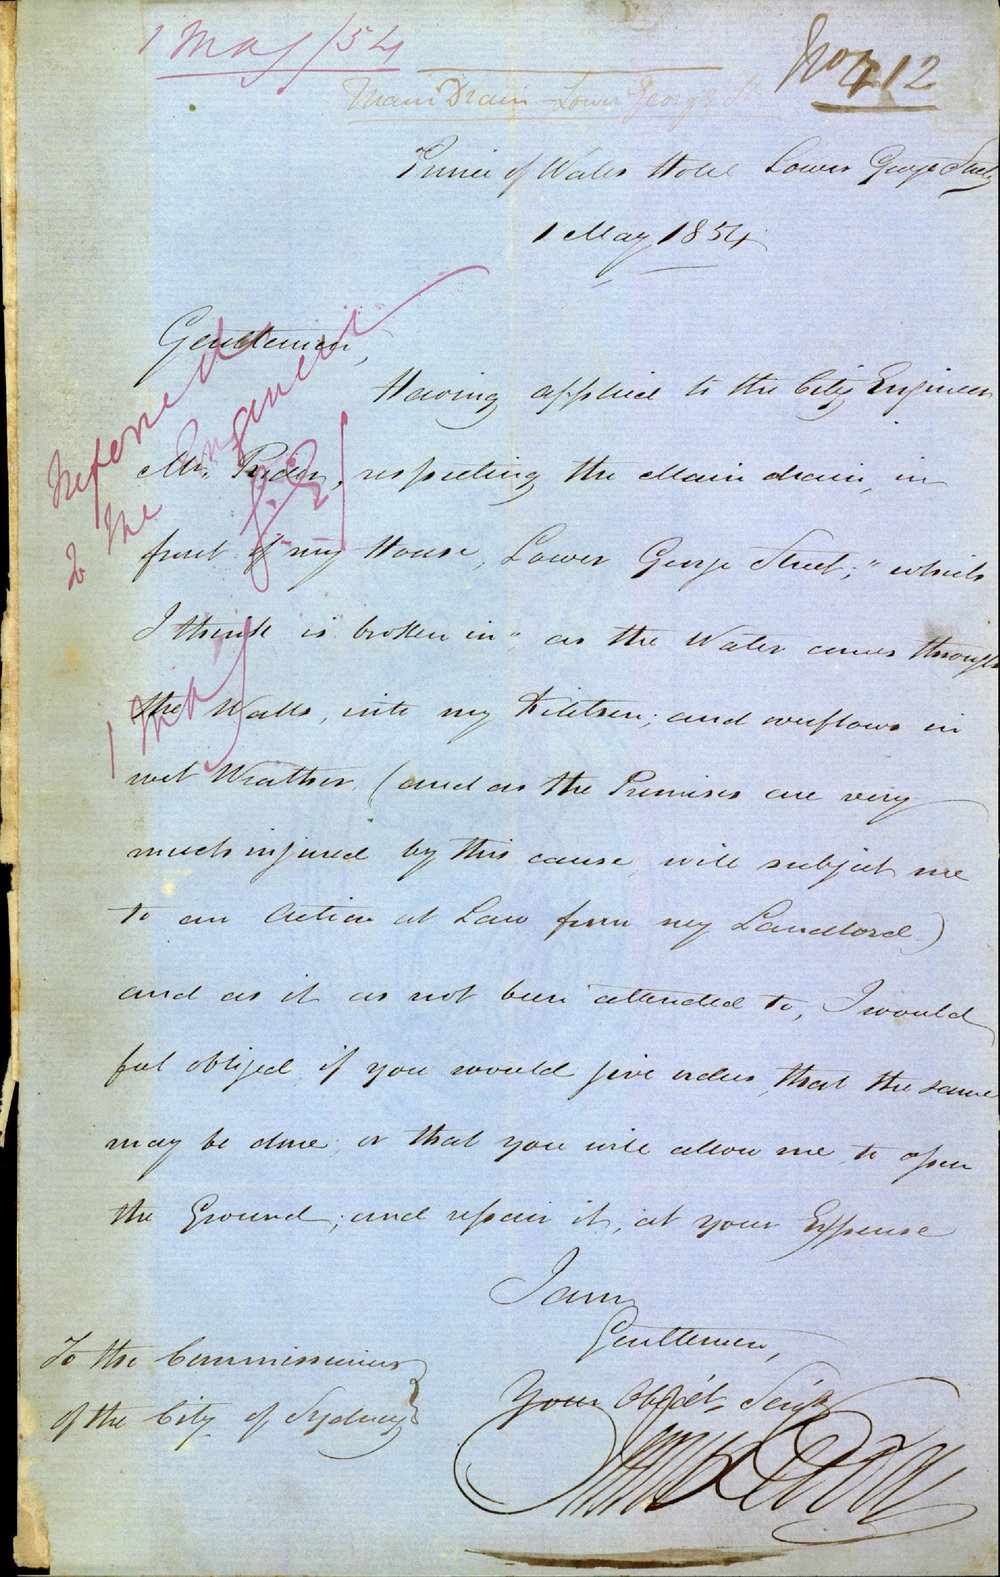 1 May /54
No 412
Main Drain - Lower George St
Prince of Wales Hotel Lower George Street
1 May 1854
Gentlemen,
Having applied to the City Engineer
Mr. Rider, respecting the Main drain, in
front of my House, Lower George Street; "which
I think is broken in" as the Water comes through
the Walls, into my Kitchen; and overflows in
wet Weather, (and as the Premises are very
much injured by this cause, will subject me
to an Action at Law from my Landlord)
and as it as not been attended to, I would
feel obliged if you would give orders that the same
may be done; or that you will allow me to open
the Ground; and repair it, at your Expense
I am
Gentlemen,
Your Obedt. Servt
To the Commissioners
of the City of Sydney
Referred
to the Engineer
1 May